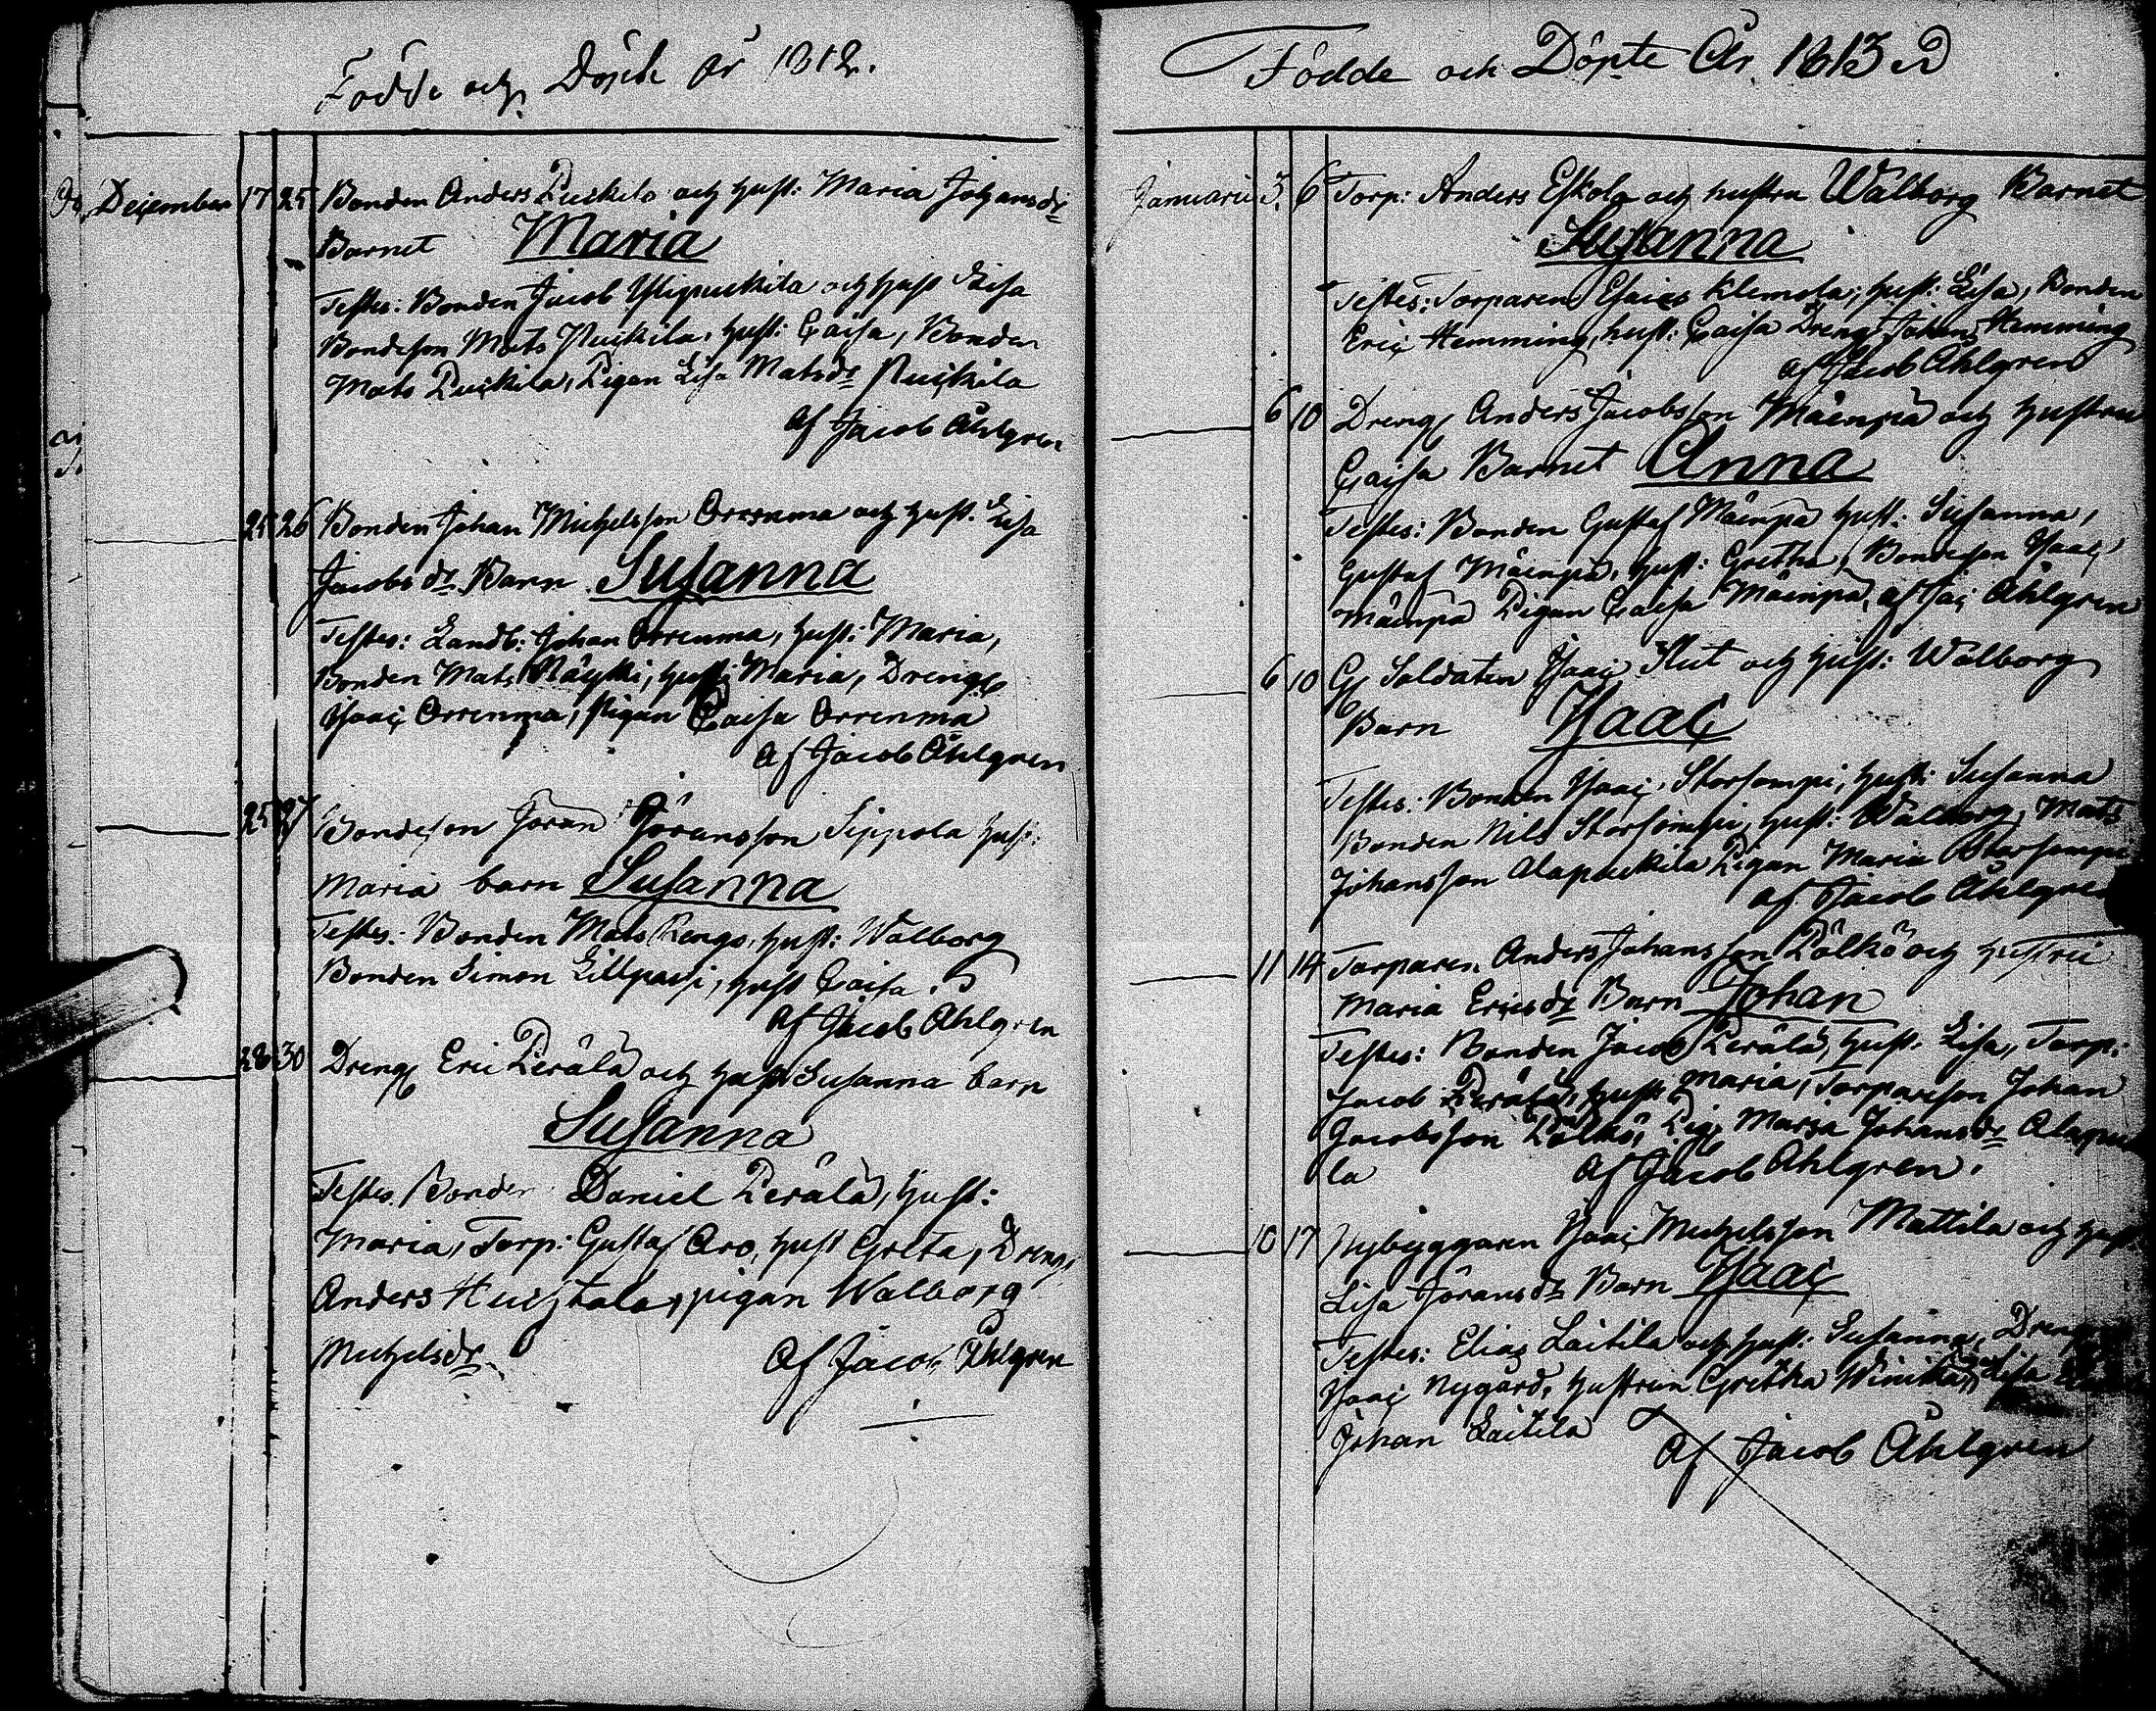 Födde och Döpte År 1812.
December 17 25 Bonden Anders Puckila och Hust: Maria Johansdr
Barnet Maria
Testes: Bonden Jacob Ylipuckila och Hust Lisa
Bondeson Mats Puckila, Hust: Caisa, Bonden
Mats Puckila, Pigan Lisa Matsdr Puckila
Af Jacob Ahlgren
25 26 Bonden Johan Michelsson Orrenma och Hust. Lisa
Jacobsdr Barn Susanna
Testes: Landb: Johan Orrenma, Hust: Maria,
Bonden Mats, Hust: Maria, Dreng
Isaac Orrenma, Pigan Caisa Orrenma
Af Jacob Ahlgren
25 27 Bondeson Jöran Jöransson Sippola Hust:
Maria barn Susanna
Testes: Bonden Mats Rengo, Hust: Walborg
Bonden Simon Lillpassi, Hust Caisa.
Af Jacob Ahlgren
28 30 Dreng Eric Perälä och Hust Susanna barn
Susanna
Testes Bonden Daniel Perälä, Hust:
Maria, Torp: Gustaf Aro, Hust Greta, Dreng
Anders Huchtala, pigan Walborg
Michelsdr. Af Jacob Ahlgren
Födde och Döpte År 1813
Januari 3. 6 Torp: Anders Eskola och hustru Walborg Barnet
Susanna
Testes: Torparen Esaias Klemola; Hust: Lisa, Bonden
Eric Hemming, hust: Caisa Dreng Johan Hemming
af Jacob Ahlgren
6 10 Dreng Anders Jacobsson Mäenpä och Hustru
Caisa Barnet Anna
Testes: Bonden Gustaf Mäenpä Hust: Susanna,
Gustaf Mäenpä, Hust: Gretha, Bondeson Isaac
Mäenpä Pigan Caisa Mäenpä, af Jac Ahlgren
6 10 Soldaten Isaac Slut och Hust: Walborg
Barn Isaac
Testes: Bonden Isaac Storsompi, Hust: Susanna
Bonden Nils Storsompi, Hust: Walborg, Mats
Johansson Alapuckila Pigan Maria Storsompi
af Jacob Ahlgren
11 14 Torparen Anders Johansson Pölkö och Hustru
Maria Ericsdr Barn Johan
Testes: Bonden Jacob Perälä, Hust. Lisa, Torp:
Jacob Perälä, Hust Maria, Torpareson Johan
Jacobsson Pölkö, Pig: Marja Johansdr Alapu
la Af Jacob Ahlgren.
10 17 Nybyggaren Isaac Michelsson Mattila och Hust
Lisa Jöransdr Barn Isaac
Testes: Elias Laitila och Hust: Susanna, Dreng
Isaac Nygård, Hustrun Gretha Winika, Lisa
Johan Laitila Af Jacob Åhlgren